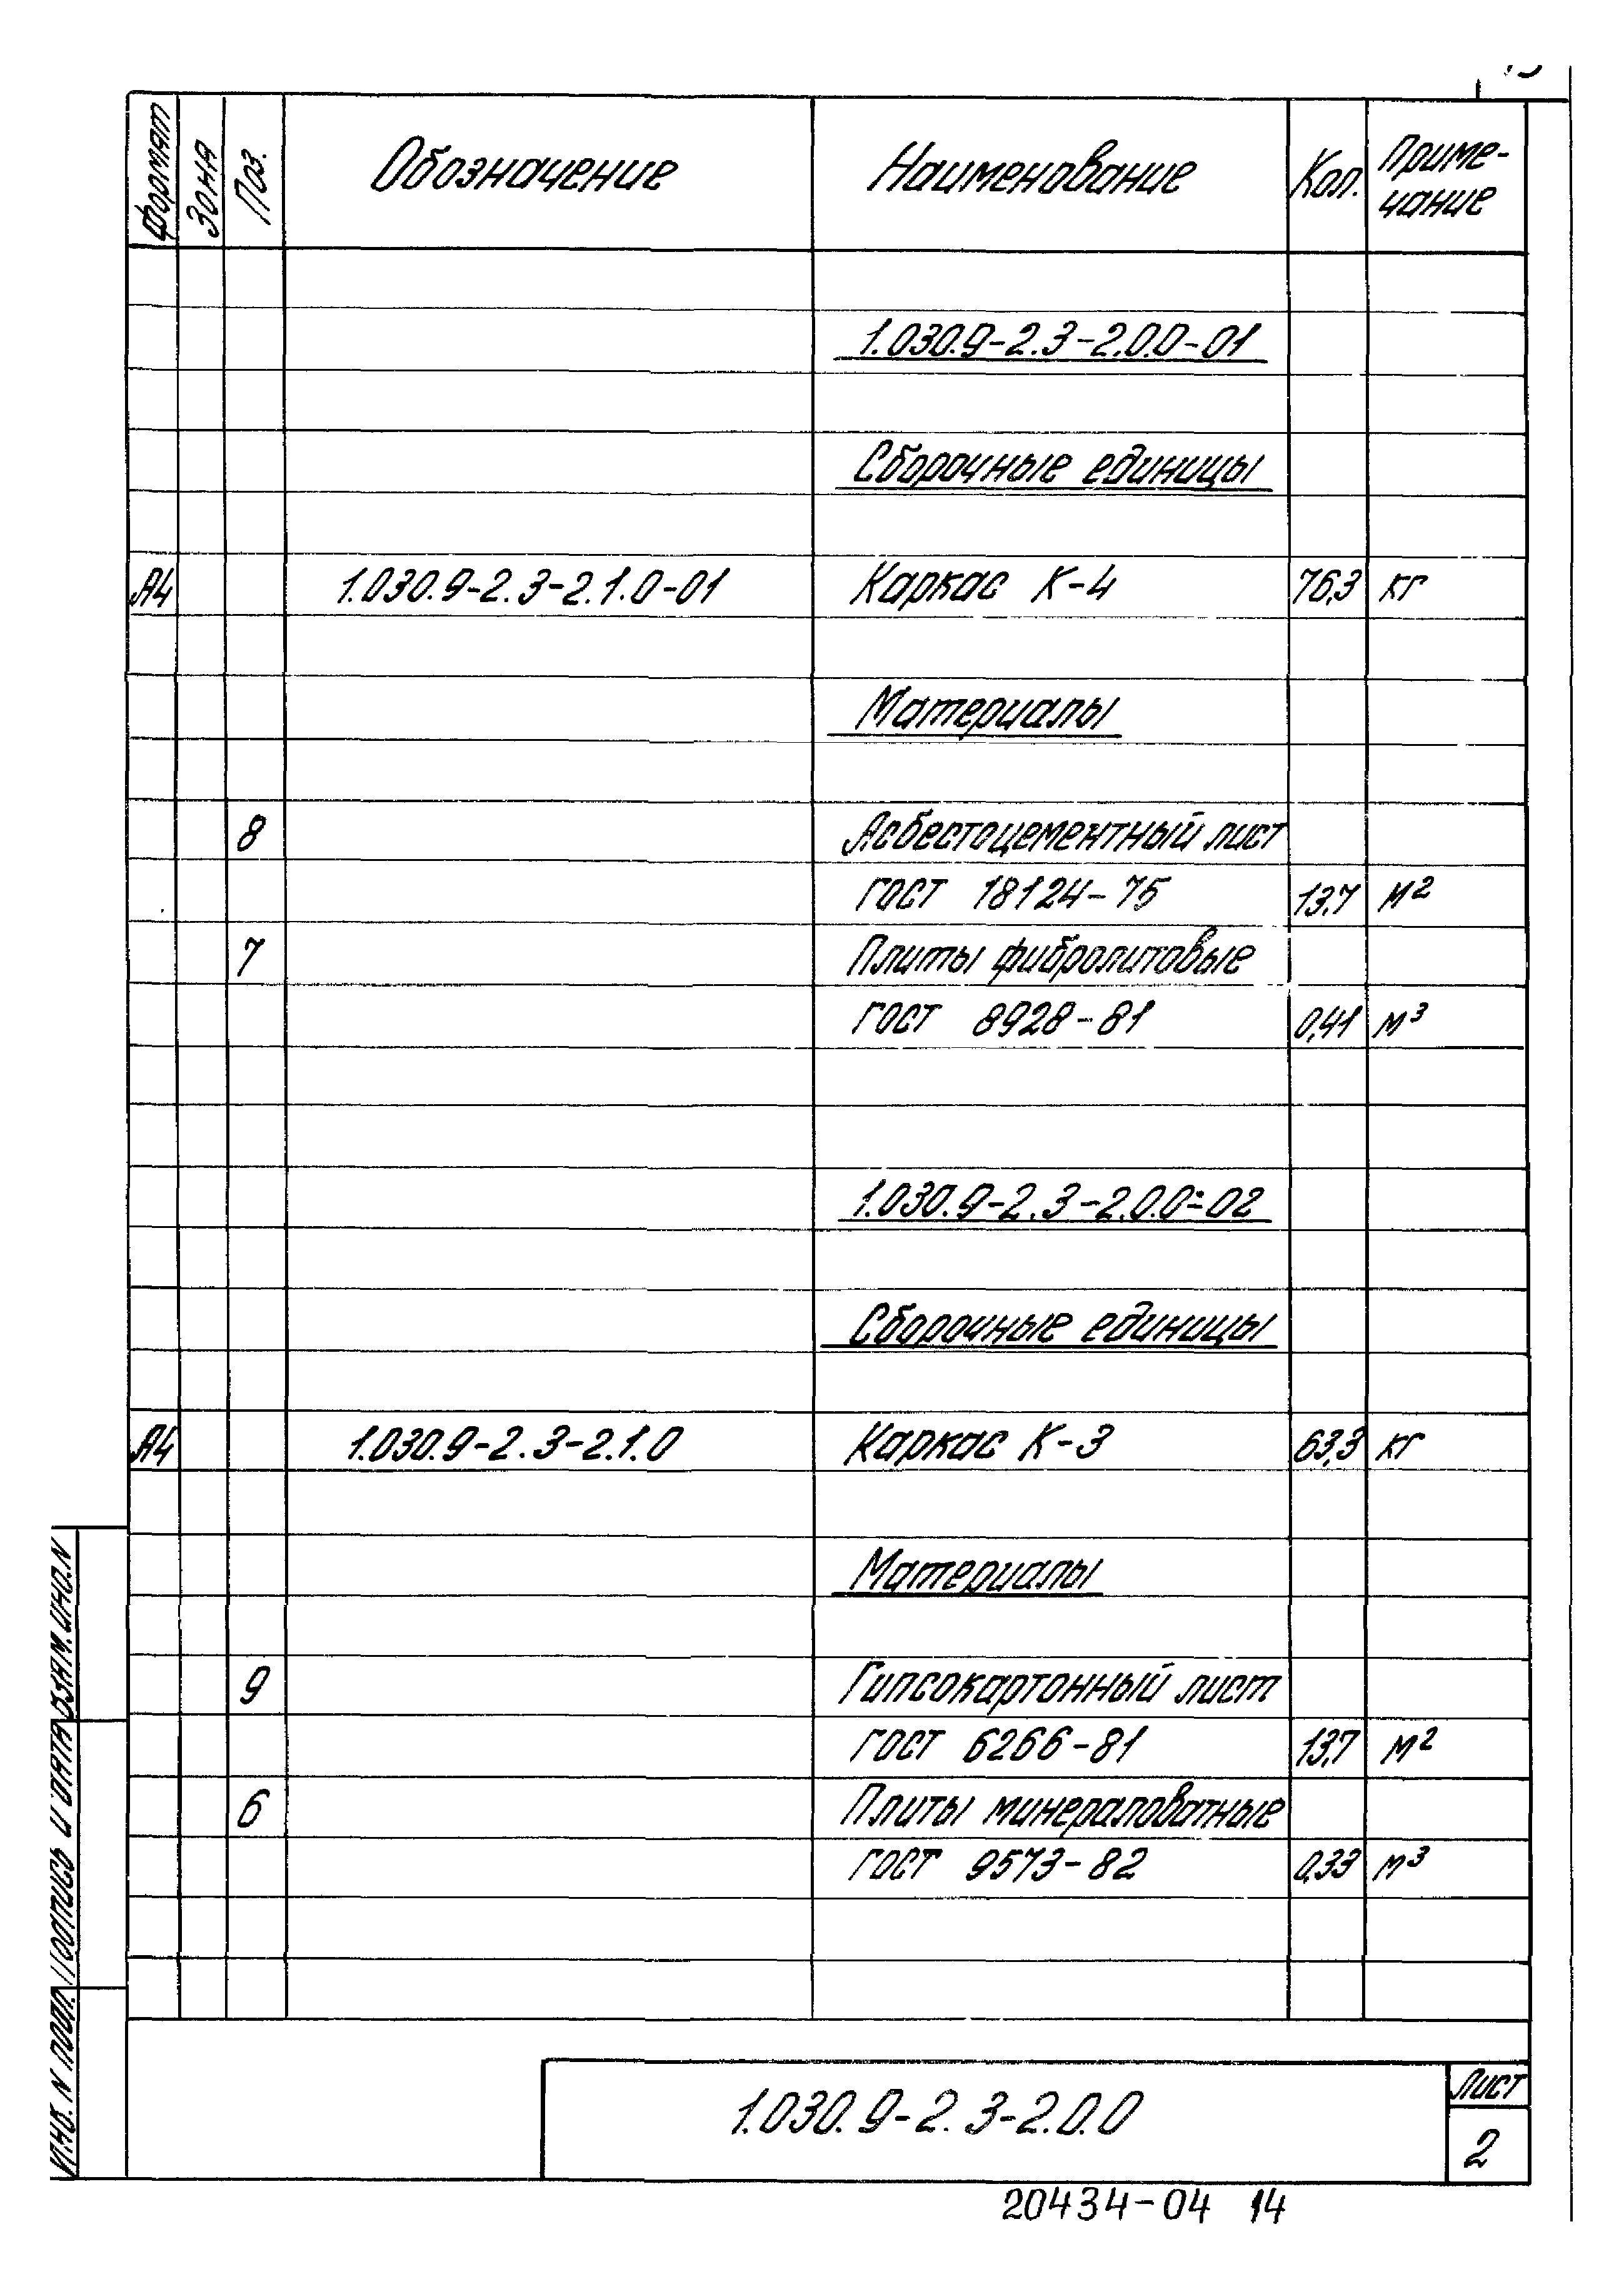 Формат Зона Поз. Обозначение Наименование Кол. Приме-
чание
1.030.9-2.3-2.0.0-01
Сборочные единицы
А4 1.030.9-2.3-2.1.0-01 Каркас К-4 76,3 кг
Материалы
8 Асбестоцементный лист
ГОСТ 18124-75 13,7 м²
7 Плиты фибролитовые
ГОСТ 8928-81 0,41 м³
1.030.9-2.3-2.0.0-02
Сборочные единицы
А4 1.030.9-2.3-2.1.0 Каркас К-3 63,3 кг
Материалы
9 Гипсокартонный лист
ГОСТ 6266-81 13,7 м²
6 Плиты минераловатные
ГОСТ 9573-82 0,33 м³
Взам. инв. N
Подпись и дата
Инв. N подл.
1.030.9-2.3-2.0.0
Лист
2
20434-04 14